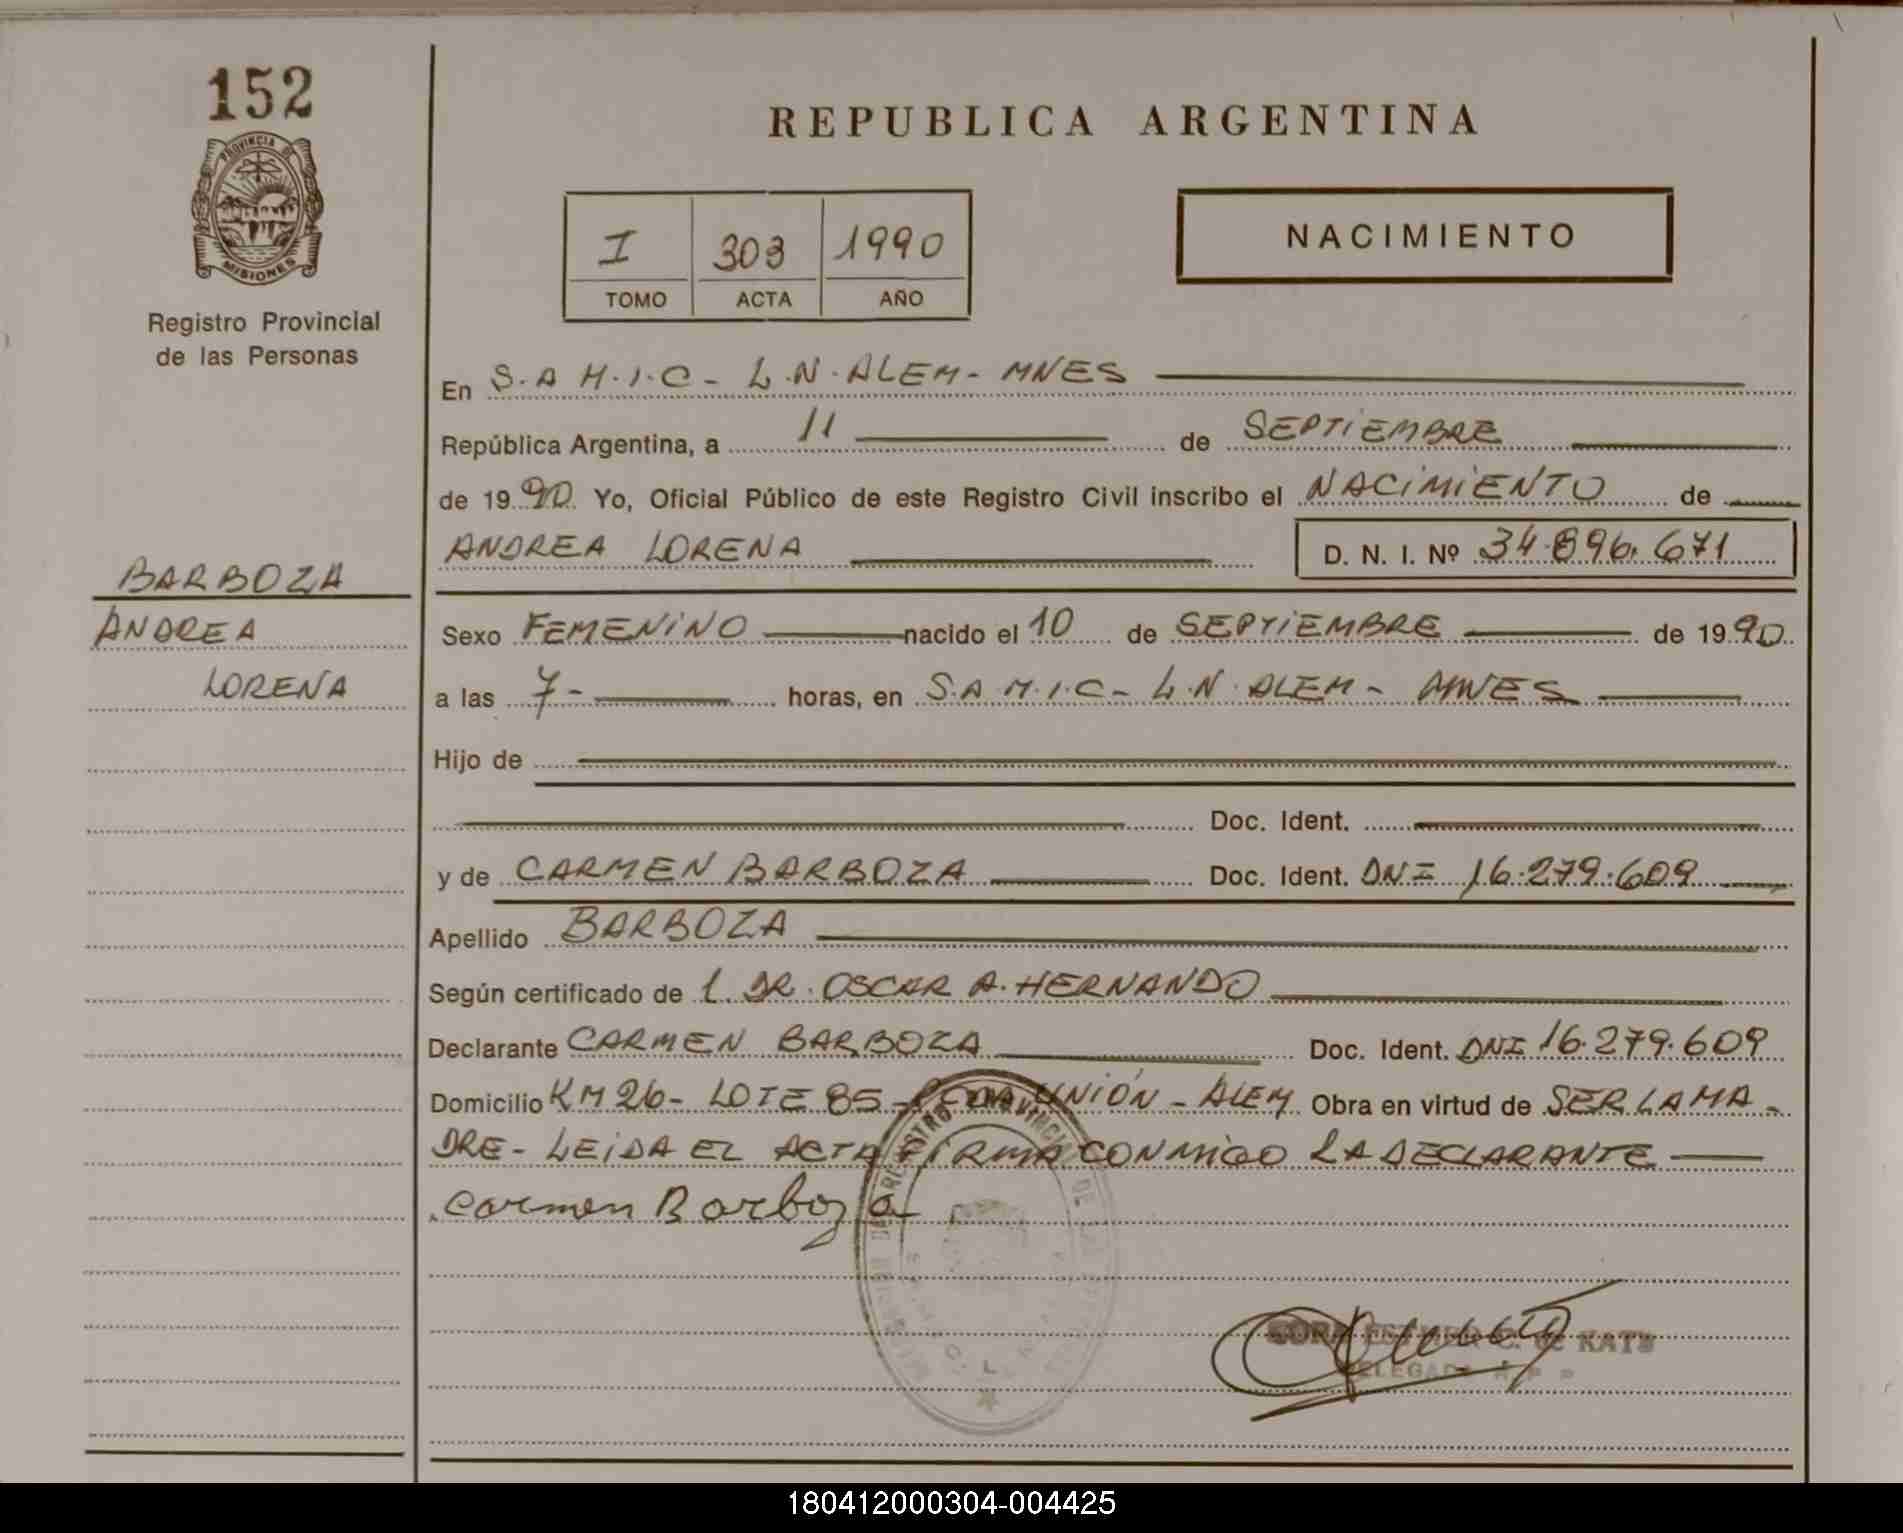 152
PROVINCIA DE
MISIONES
Registro Provincial
de las Personas
BARBOZA
ANDREA
LORENA
REPUBLICA ARGENTINA
I 303 1990
TOMO ACTA AÑO
NACIMIENTO
En S.A.M.I.C- L.N.ALEM- MNES
República Argentina, a 11 de SEPTIEMBRE
de 1990. Yo, Oficial Público de este Registro Civil inscribo el NACIMIENTO de
ANDREA LORENA D. N. I. Nº 34.896.671
Sexo FEMENINO nacido el 10 de SEPTIEMBRE de 1990.
a las 7- horas, en S.A.M.I.C- L.N.ALEM- MNES
Hijo de
Doc. Ident.
y de CARMEN BARBOZA Doc. Ident. DNI 16.279.609
Apellido BARBOZA
Según certificado de 1. DR. OSCAR A. HERNANDO
Declarante CARMEN BARBOZA Doc. Ident. DNI 16.279.609
Domicilio KM 26- LOTE 85- UNIÓN - ALEM Obra en virtud de SER LA MA-
DRE- LEIDA EL ACTA FIRMA CONMIGO LA DECLARANTE
Carmen Barboza
ESTHER C. de KATZ
DELEGADA
180412000304-004425